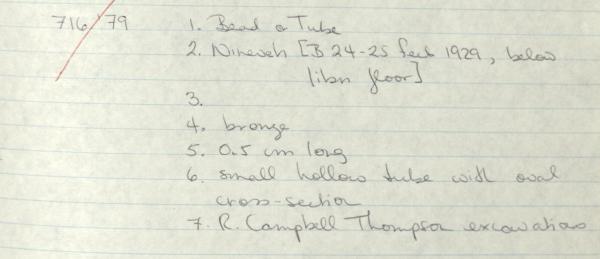 716/79
1. Bead or Tube
2. Nineveh [B 24-25 feet 1929, below
libn floor]
3.
4. bronze
5. 0.5 cm long
6. small hollow tube with oval
cross-section
7. R. Campbell Thompson excavations